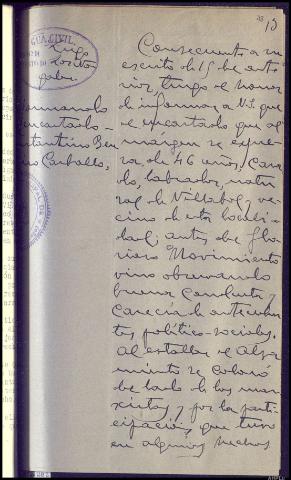 GUA CIVIL
Lugo
Informando
encartado
Carballo,
13
Consecuente a su
escrito de 15 de ante
rior, tengo el honor
de informar a V.S. que
el encartado que al
márgen se expre
sa, de 46 años, casa
do, labrador, natu
ral de Villabol y ve
cino de esta locali
dad; antes del Glo
rioso Movimiento
vino observando
buena conducta y
carecia de anteceden
tes político-sociales.
Al estallar el Alza
miento se colocó
del lado de los mar
xistas, y por la parti
cipación que tuvo
en algunos hechos